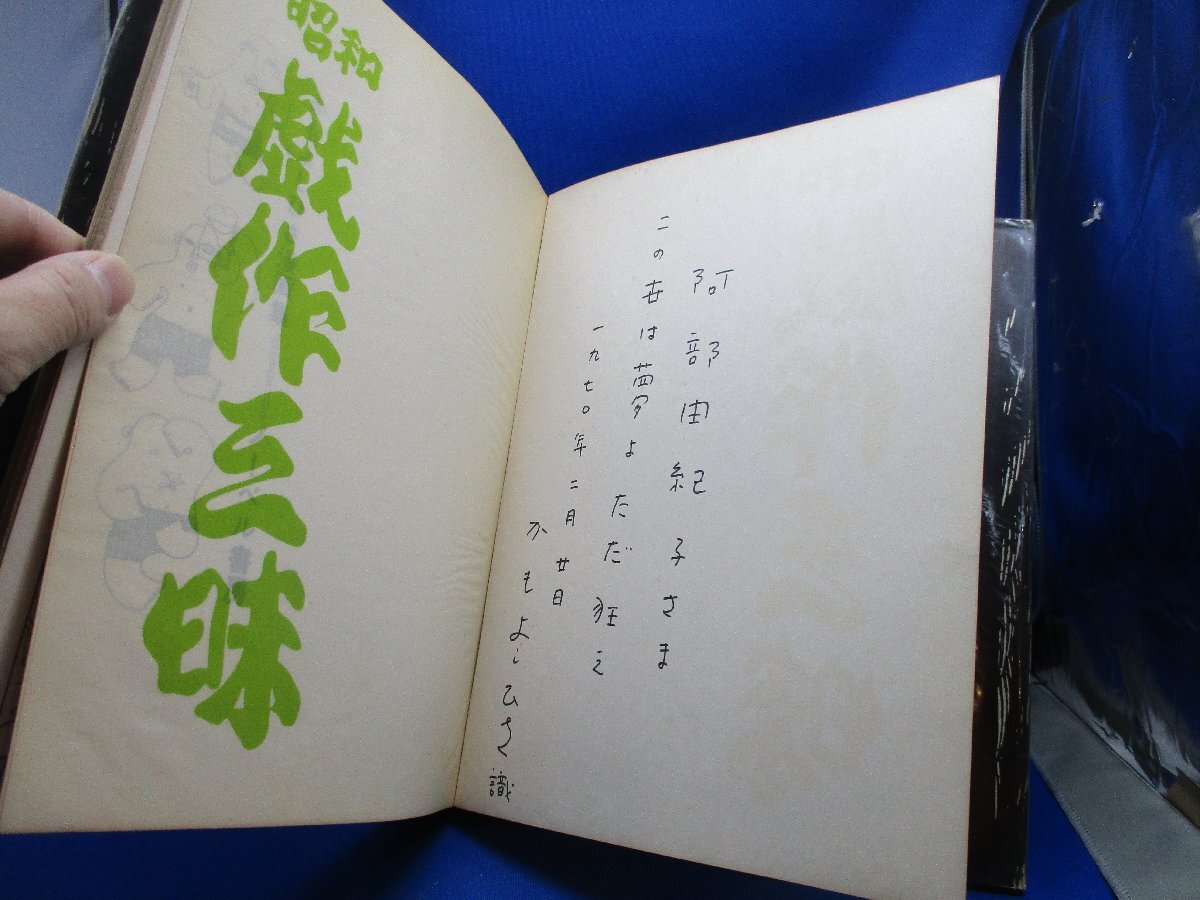 阿部由紀子さま
この世は夢よただ狂え
一九七〇年二月廿日
かもよしひさ識
昭和
戯作三昧